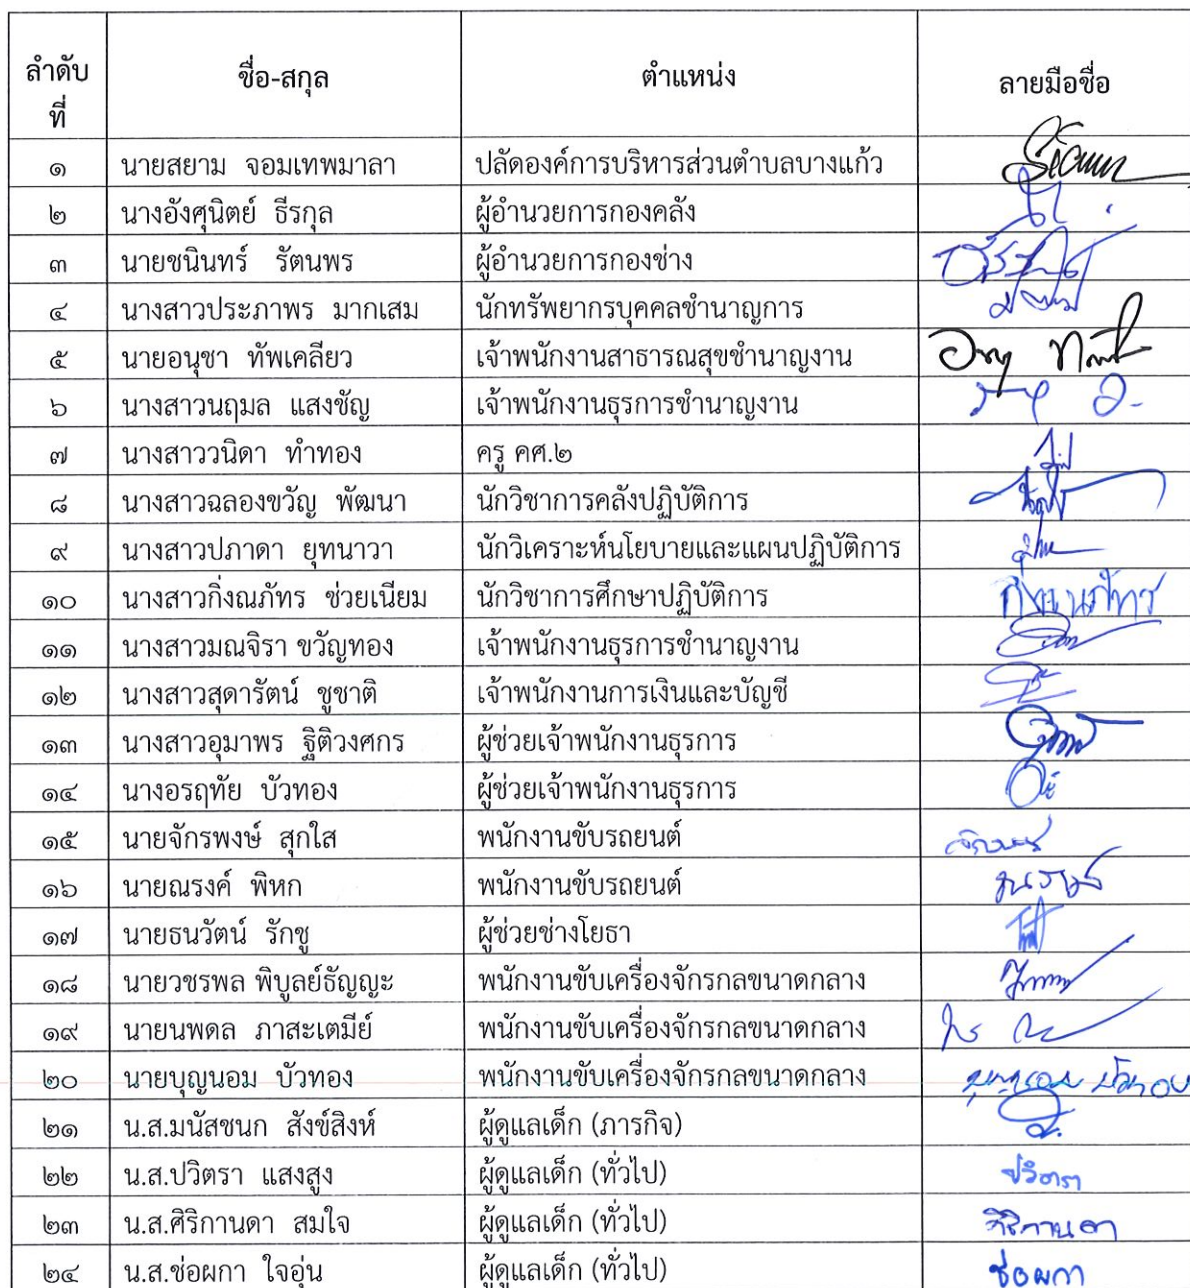 ลำดับ
ที่
ชื่อ-สกุล
ตำแหน่ง
ลายมือชื่อ
๑ นายสยาม จอมเทพมาลา ปลัดองค์การบริหารส่วนตำบลบางแก้ว
๒ นางอังศุนิตย์ ธีรกุล ผู้อำนวยการกองคลัง
๓ นายชนินทร์ รัตนพร ผู้อำนวยการกองช่าง
๔ นางสาวประภาพร มากเสม นักทรัพยากรบุคคลชำนาญการ
๕ นายอนุชา ทัพเคลียว เจ้าพนักงานสาธารณสุขชำนาญงาน
๖ นางสาวนฤมล แสงชัญ เจ้าพนักงานธุรการชำนาญงาน
๗ นางสาววนิดา ทำทอง ครู คศ.๒
๘ นางสาวฉลองขวัญ พัฒนา นักวิชาการคลังปฏิบัติการ
๙ นางสาวปภาดา ยุทนาวา นักวิเคราะห์นโยบายและแผนปฏิบัติการ
๑๐ นางสาวกิ่งณภัทร ช่วยเนียม นักวิชาการศึกษาปฏิบัติการ
๑๑ นางสาวมณจิรา ขวัญทอง เจ้าพนักงานธุรการชำนาญงาน
๑๒ นางสาวสุดารัตน์ ชูชาติ เจ้าพนักงานการเงินและบัญชี
๑๓ นางสาวอุมาพร ฐิติวงศกร ผู้ช่วยเจ้าพนักงานธุรการ
๑๔ นางอรฤทัย บัวทอง ผู้ช่วยเจ้าพนักงานธุรการ
๑๕ นายจักรพงษ์ สุกใส พนักงานขับรถยนต์
๑๖ นายณรงค์ พิหก พนักงานขับรถยนต์
๑๗ นายธนวัตน์ รักชู ผู้ช่วยช่างโยธา
๑๘ นายวชรพล พิบูลย์ธัญญะ พนักงานขับเครื่องจักรกลขนาดกลาง
๑๙ นายนพดล ภาสะเตมีย์ พนักงานขับเครื่องจักรกลขนาดกลาง
๒๐ นายบุญนอม บัวทอง พนักงานขับเครื่องจักรกลขนาดกลาง
๒๑ น.ส.มนัสชนก สังข์สิงห์ ผู้ดูแลเด็ก (ภารกิจ)
๒๒ น.ส.ปวิตรา แสงสูง ผู้ดูแลเด็ก (ทั่วไป)
๒๓ น.ส.ศิริกานดา สมใจ ผู้ดูแลเด็ก (ทั่วไป) ศิริกานดา
๒๔ น.ส.ช่อผกา ใจอุ่น ผู้ดูแลเด็ก (ทั่วไป) ช่อผกา